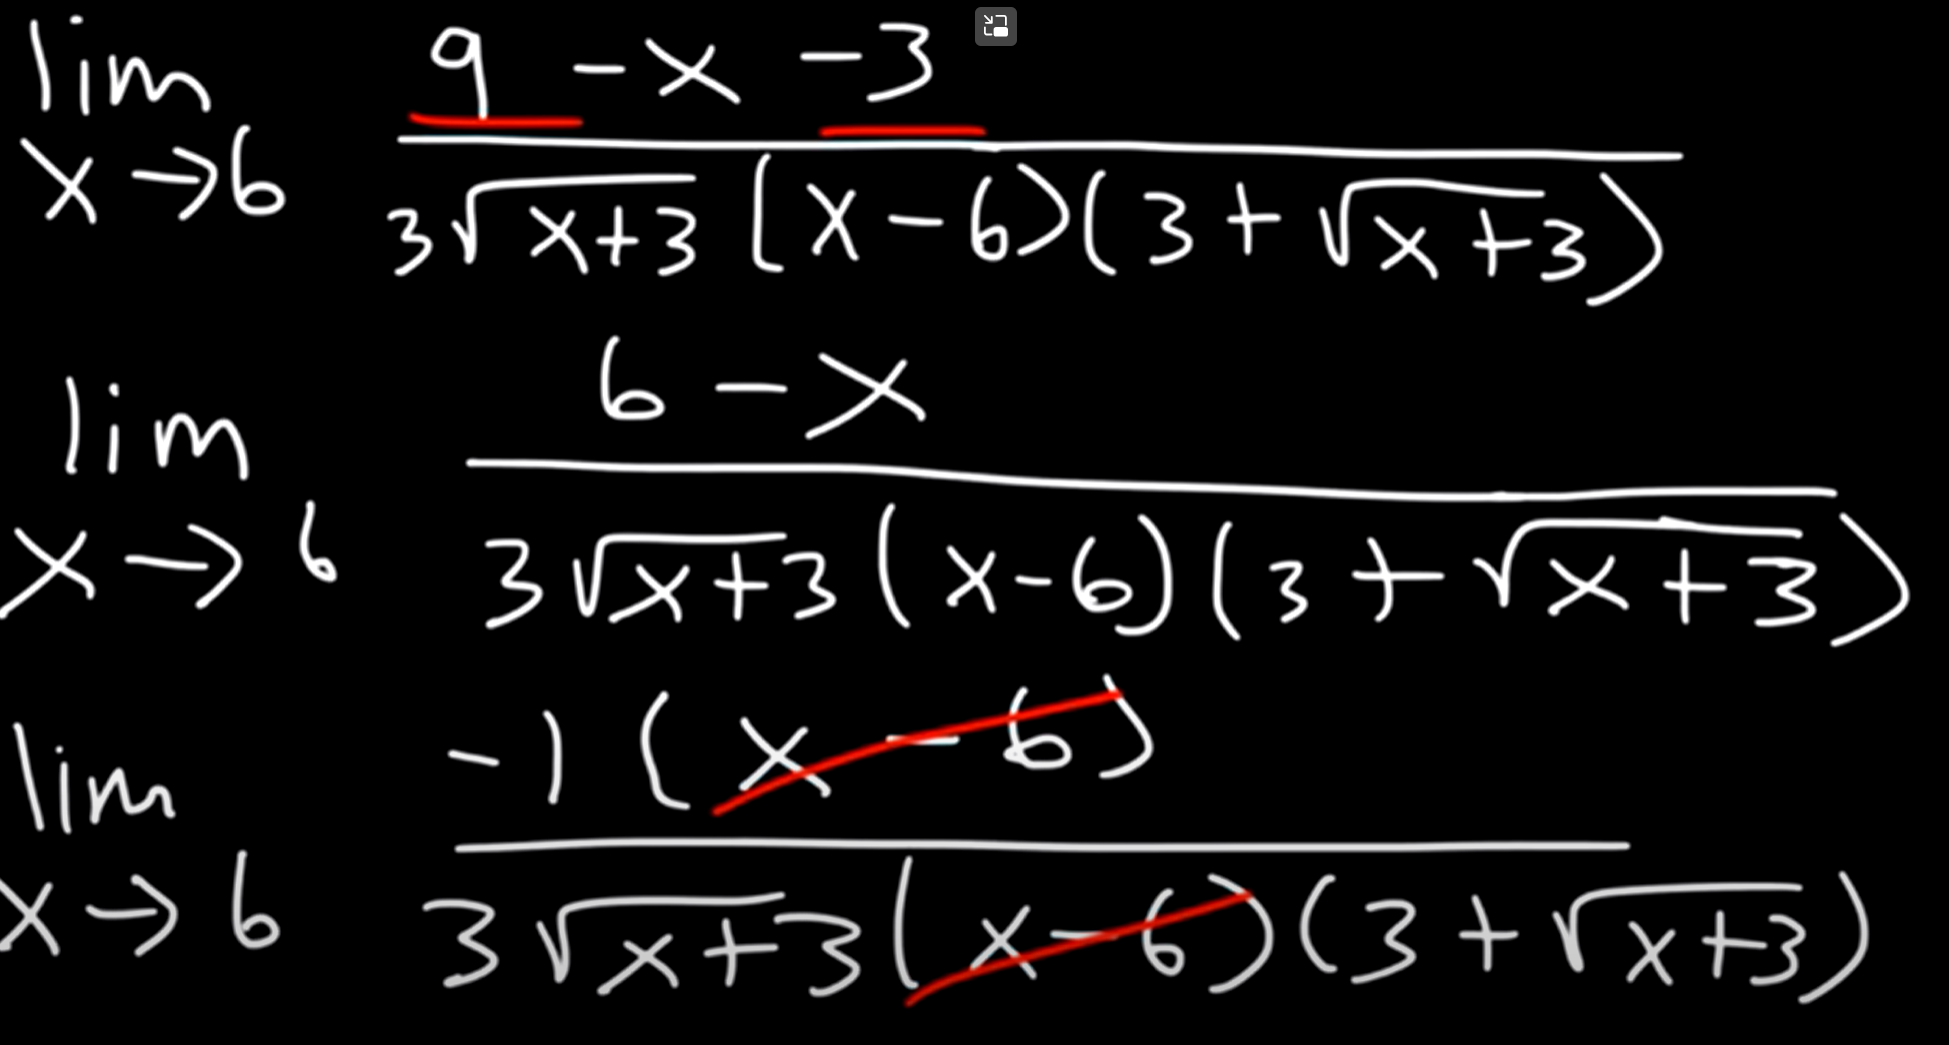 lim 9 - x - 3
x → 6 3√x+3 (x - 6)(3 + √x + 3)
lim 6 - x
x → 6 3√x+3 (x-6)(3 + √x+3)
lim -1 (x - 6)
x → 6 3√x+3 (x-6)(3 + √x+3)